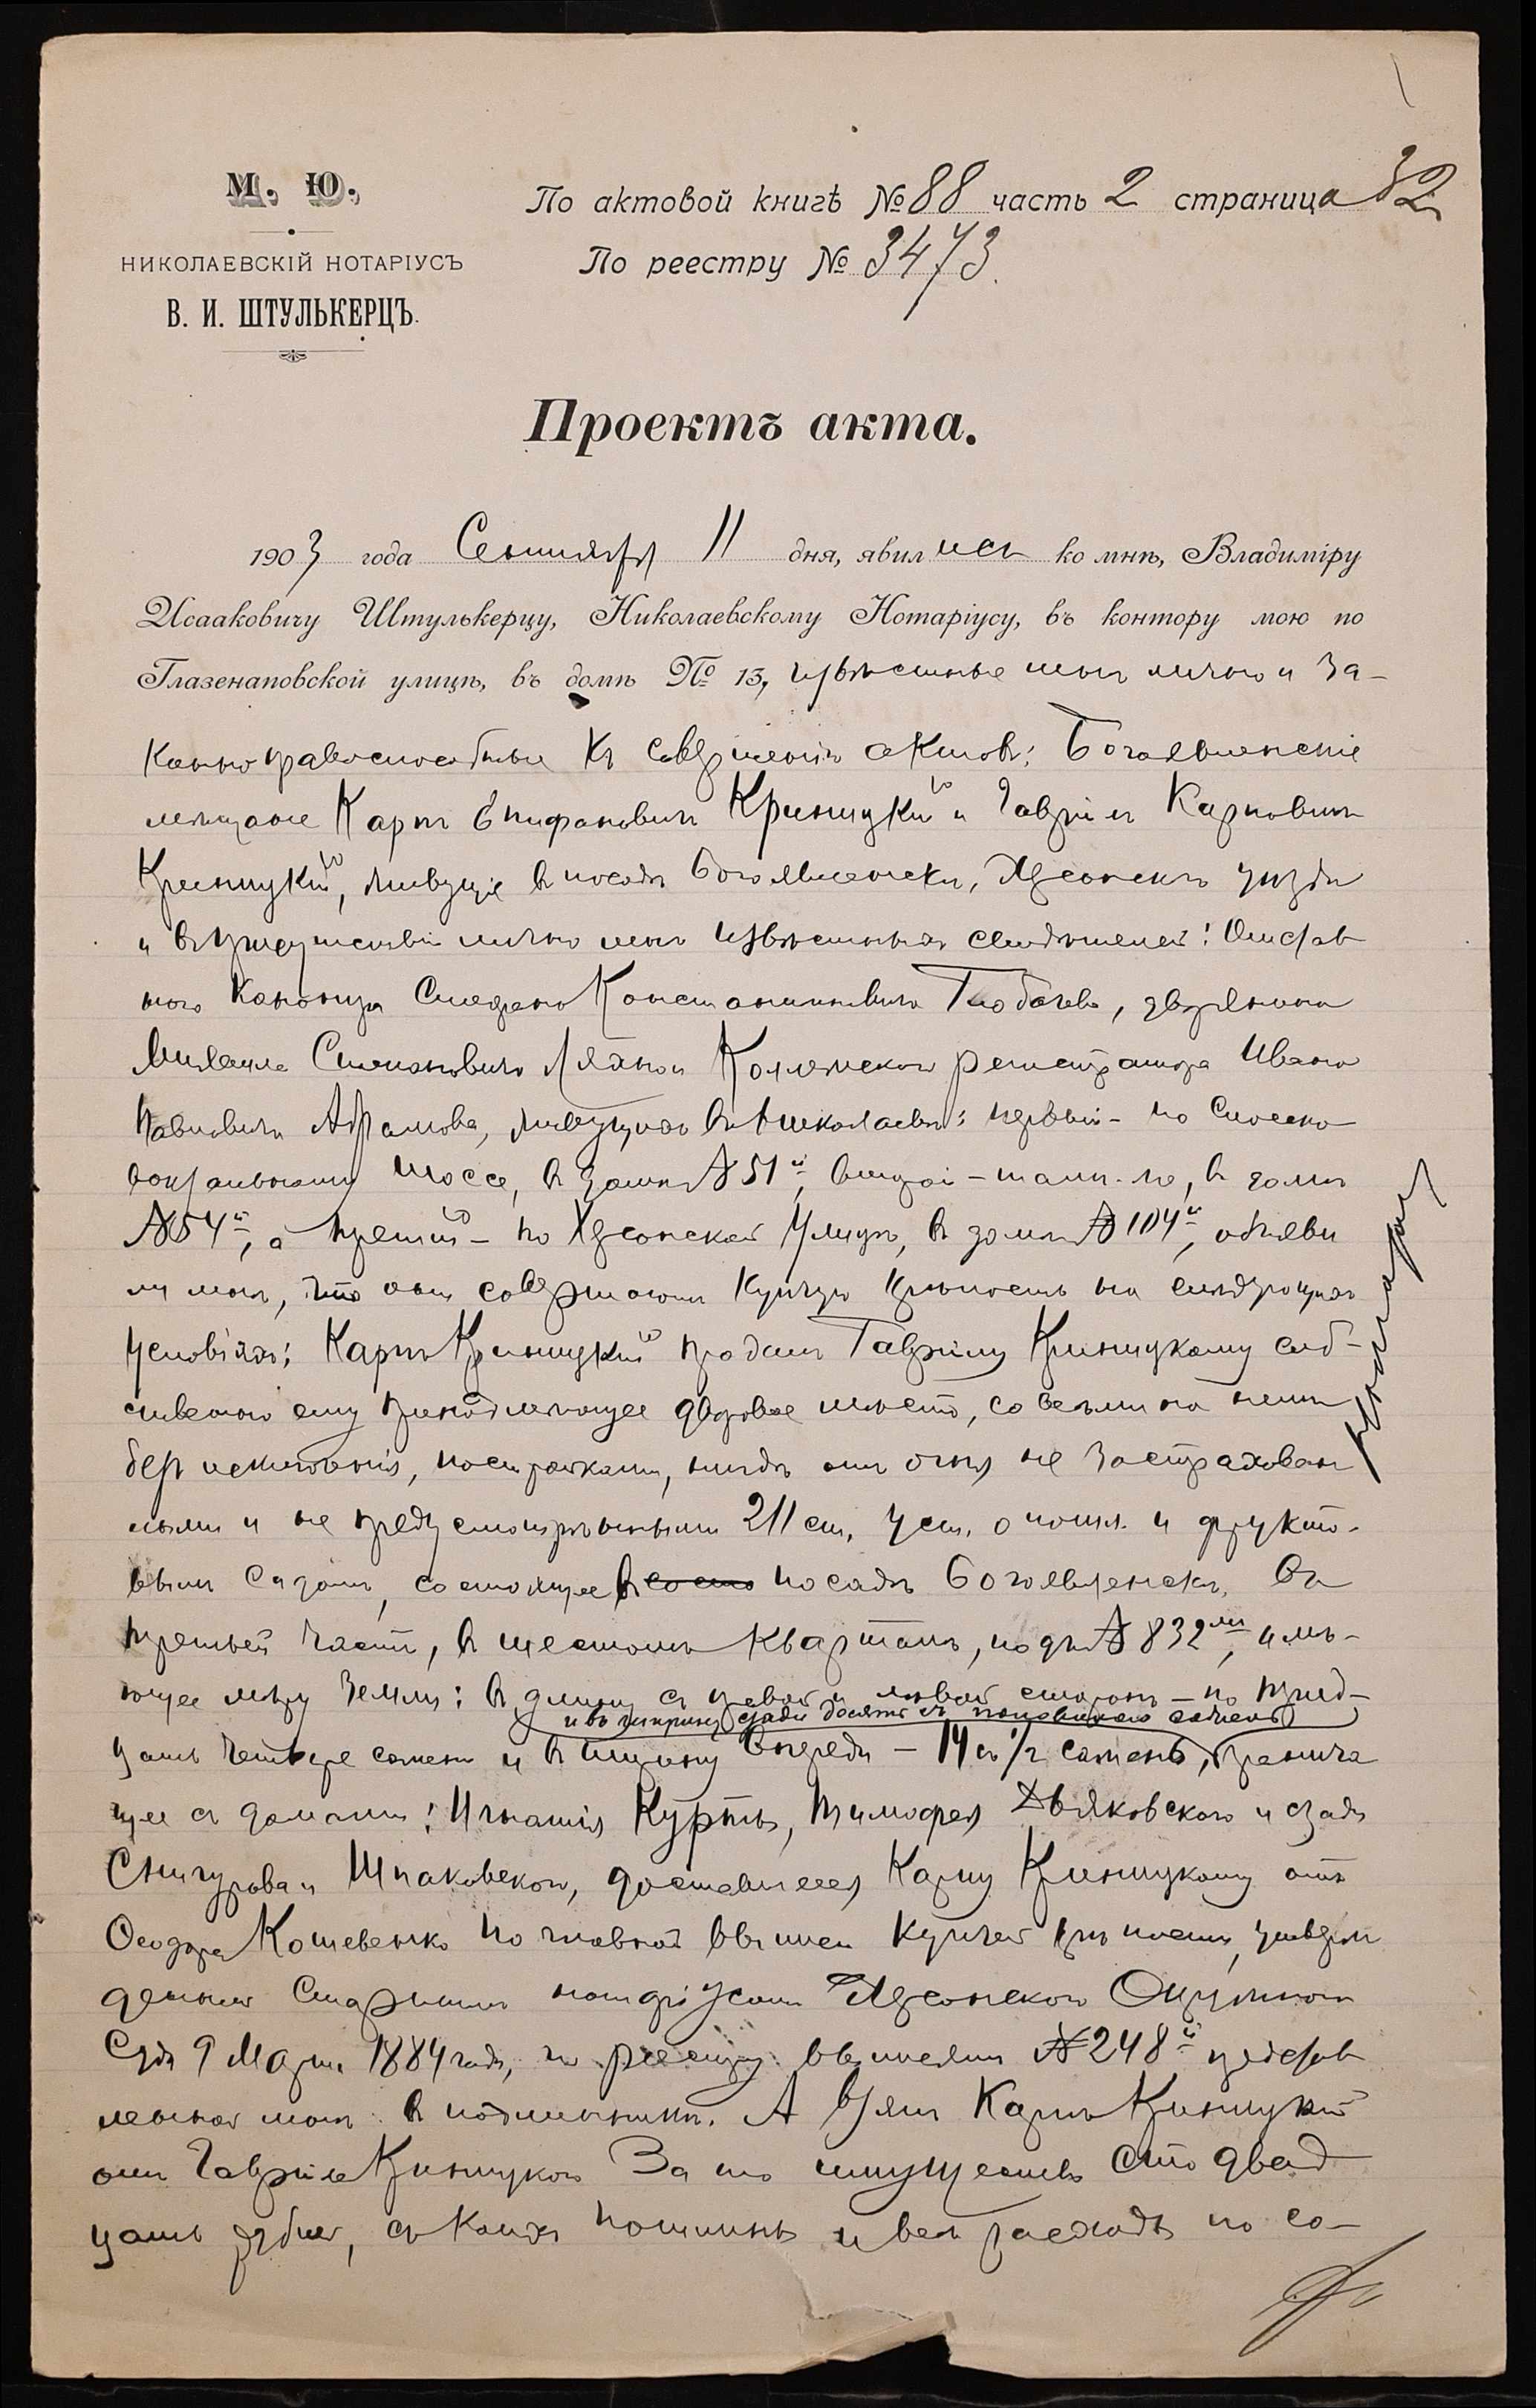 М. Ю.
НИКОЛАЕВСКІЙ НОТАРІУСЪ
В. И. ШТУЛЬКЕРЦЪ.
По актовой книгѣ № 88 часть 2 страница 32
По реестру № 3473.
Проектъ акта.
1903 года Сентября 11 дня, явились ко мнѣ, Владиміру
Исааковичу Штулькерцу, Николаевскому Нотаріусу, въ контору мою по
Глазенаповской улицѣ, въ домѣ № 13, извѣстные мнѣ лично и за-
конноправоспособные къ совершенію актовъ: Богоявленскіе
мѣщане Карпъ Епифановичъ Криницкій и Гавріилъ Карповичъ
Криницкій, живущіе въ посадѣ Богоявленскѣ, Херсонскаго уѣзда
и въ присутствіи лично мнѣ извѣстныхъ свидѣтелей: Отстав
ного Степана Константиновича, дворянина
Михаила Степановича и Коллежскаго регистратора Ивана
Павловича Абрамова, живущихъ въ Николаевѣ: первый - по Спасско
вокзальному шоссе, въ домѣ №51й, второй - тамъ-же, въ домѣ
№54й, а третій - по Херсонской улицѣ, въ домѣ №104й, объяви
ли мнѣ, что они совершаютъ купчую крѣпость на слѣдующихъ
условіяхъ: Карпъ Криницкій продалъ Гавріилу Криницкому соб-
ственно ему принадлежащее дворовое мѣсто, со всѣми на немъ
безъ исключенія, постройками, нигдѣ отъ огня не застрахован
ными и не предусмотрѣнными 211 ст. уст. о пошл. и фрукто-
вымъ садомъ, состоящее въ посадѣ Богоявленскѣ, въ
третьей части, въ шестомъ кварталѣ, подъ №832ми, имѣ-
ющее мѣру земли: въ длину съ правой и лѣвой сторонъ - по трид-
и въ ширину сзади десять съ половиною саженъ
цать четыре сажени и въ ширину впереди - 14 съ 1/2 саженъ, гранича
щее съ домами: Игнатія Курты, Тимофея Дьяковского и сзади
Снигурова и Шпаковского, доставшееся Карпу Криницкому отъ
Ѳеодора Кошевенко по главной выписи купчей крѣпости, утверж
денной Старшимъ нотаріусомъ Херсонского Окружнаго
Суда 9 Марта 1884 года, по реестру выписямъ №248й представ
ленной мнѣ въ подлинникѣ. А взялъ Карпъ Криницкій
отъ Гавріила Криницкого за то имущество сто двад
цать рублей, съ коихъ пошлины и всѣ расходы по со-